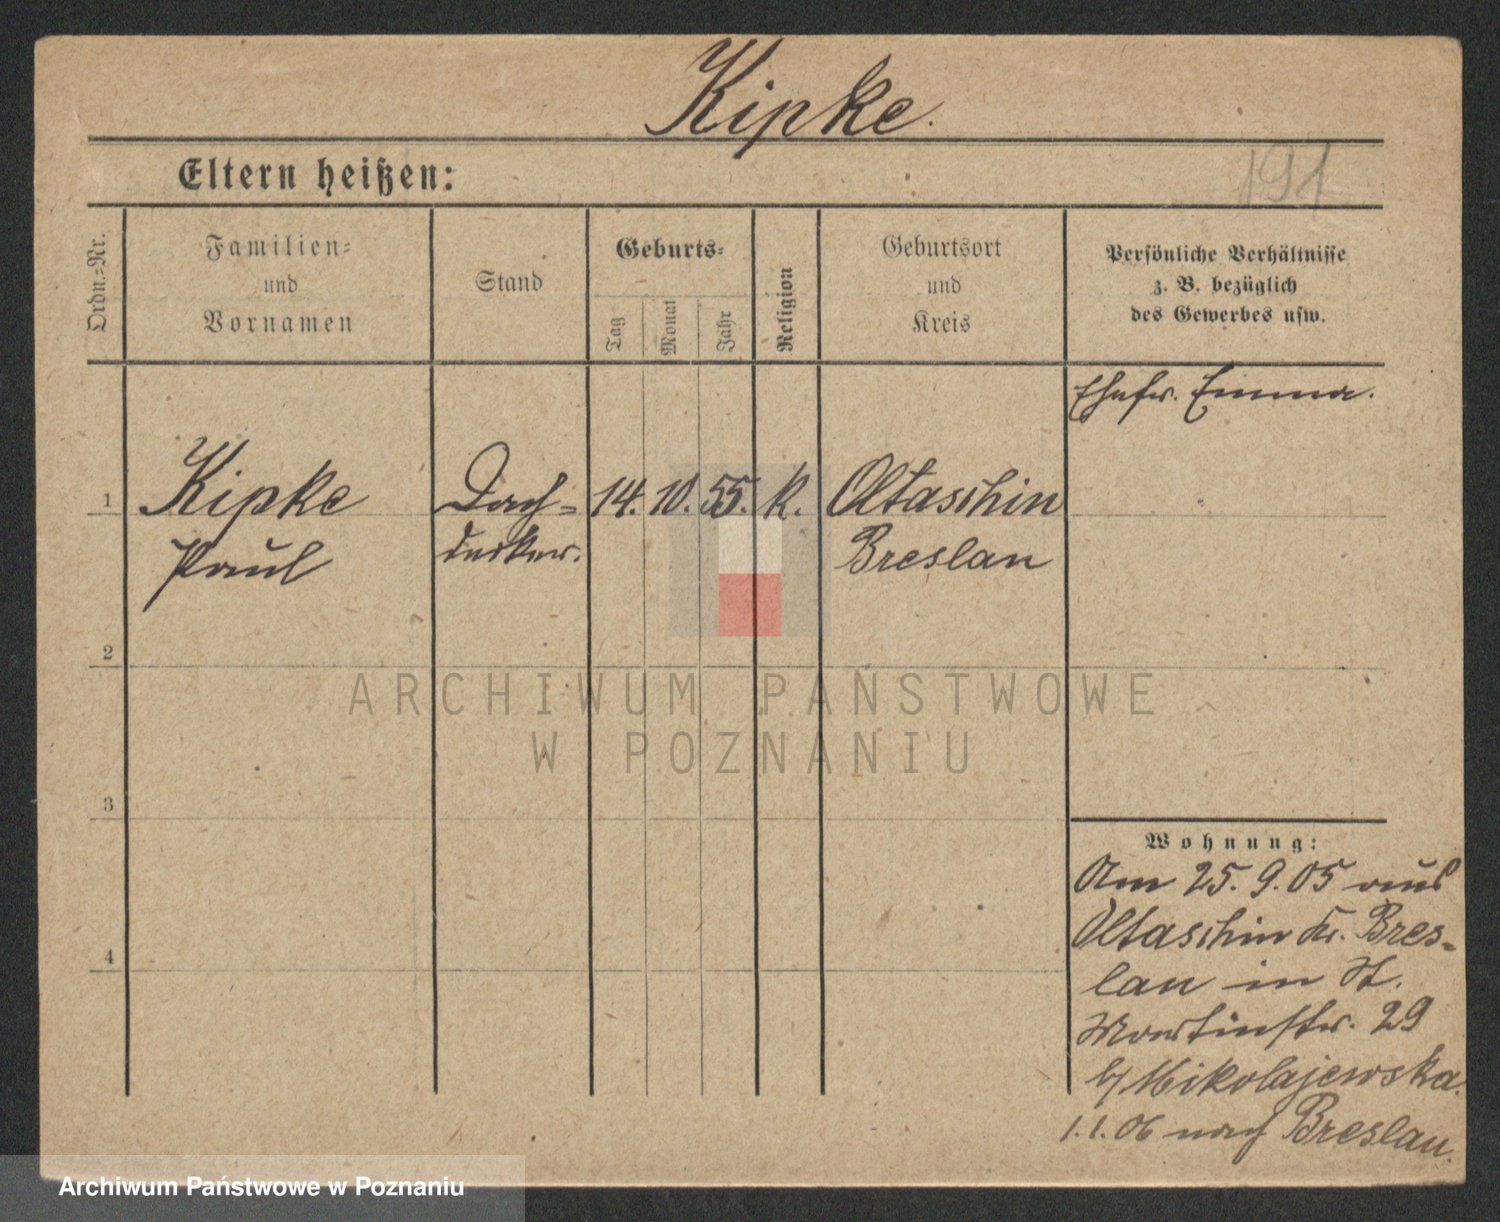 Kipke.
Eltern heißen:
191
Ordn.=Nr.
Familien=
und
Vornamen
Stand
Geburts=
Tag
Monat
Jahr
Religion
Geburtsort
und
Kreis
Persönliche Verhältnisse
z. B. bezüglich
des Gewerbes usw.
Ehefr. Emma.
1
Kipke
Paul
Dach=
decker.
14. 10. 55. k.
Oltaschin
Breslau
2
3
4
Wohnung:
Am 25. 9. 05 aus
Oltaschin Kr. Bres-
lau in St.
Martinstr. 29
b/ Mikolajewska.
1. 1. 06 nach Breslau.
ARCHIWUM PAŃSTWOWE
W POZNANIU
Archiwum Państwowe w Poznaniu